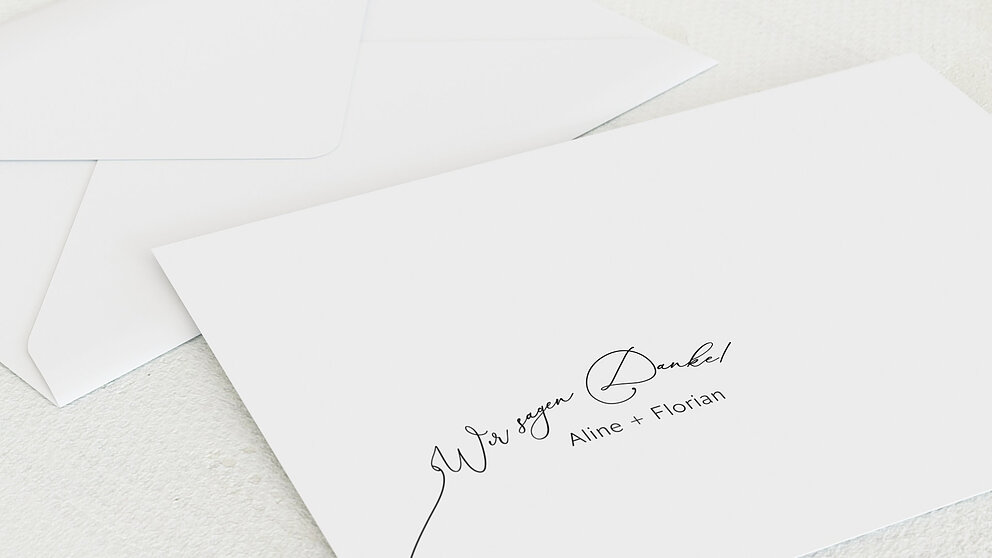 Wir sagen Danke!
Aline + Florian